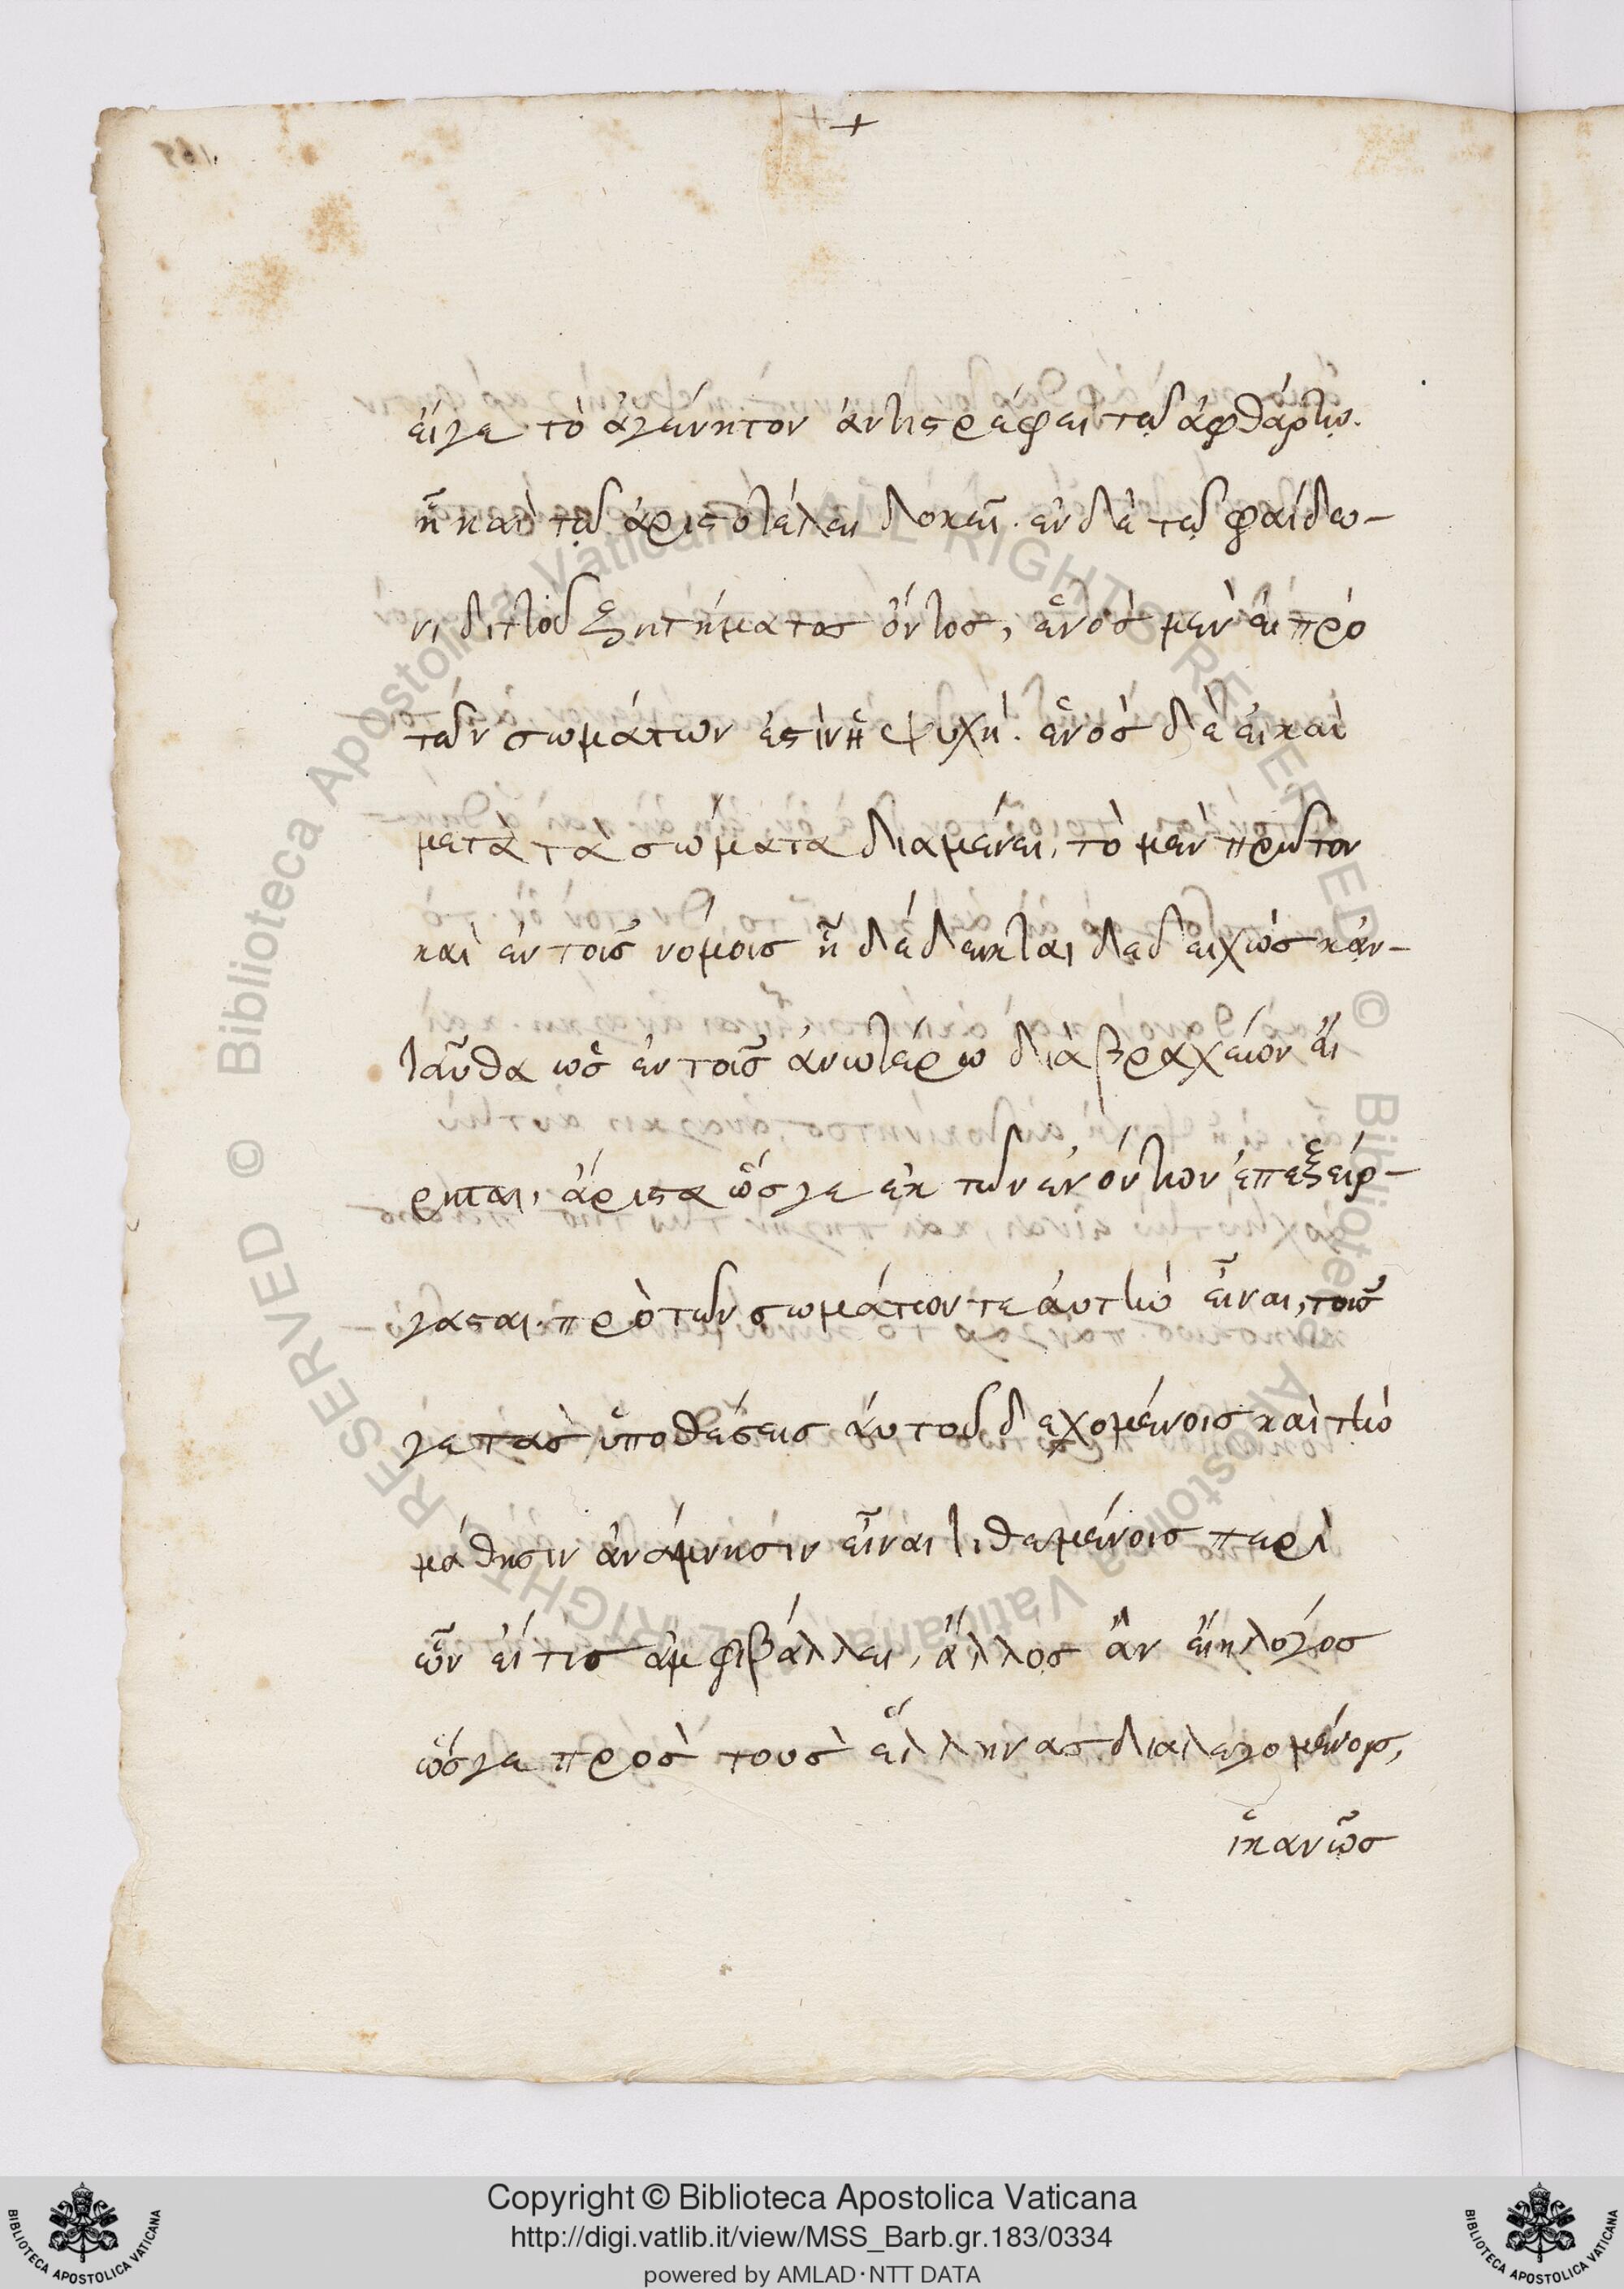 +
εἴγε τὸ ἀγέννητον ἀντιστρέφει τῷ ἀφθάρτῳ.
ᾗ καὶ τῷ ἀριστοτέλει δοκεῖ. ἐν δὲ τῷ φαίδω-
νι διττοῦ ζητήματος ὄντος, ἑνὸς μὲν εἰ πρὸ
τῶν σωμάτων ἐστὶν ἡ ψυχή. ἑνὸς δὲ εἰ καὶ
μετὰ τὰ σώματα διαμένει, τὸ μὲν πρῶτον
καὶ ἐν τοῖς νόμοις ᾗ δέδεικται δεδειχὼς κἀν-
ταῦθα ὡς ἐν τοῖς ἀνωτέρω διὰ βραχείων εἴ
ρηται, ἄριστα ὥς γε ἐκ τῶν ἐνόντων ἐπεξείρ-
γασται. πρὸ τῶν σωμάτων τε αὐτὴν εἶναι, τοῖς
γε τὰς ὑποθέσεις αὐτοῦ δεχομένοις καὶ τὴν
μάθησιν ἀνάμνησιν εἶναι τιθεμένοις περὶ
ὧν εἴ τις ἀμφιβάλλει, ἄλλος ἂν εἴη λόγος
ὥς γε πρὸς τοὺς ἕλληνας διαλεγομένοις,
ἱκανῶς
Copyright © Biblioteca Apostolica Vaticana
http://digi.vatlib.it/view/MSS_Barb.gr.183/0334
powered by AMLAD·NTT DATA